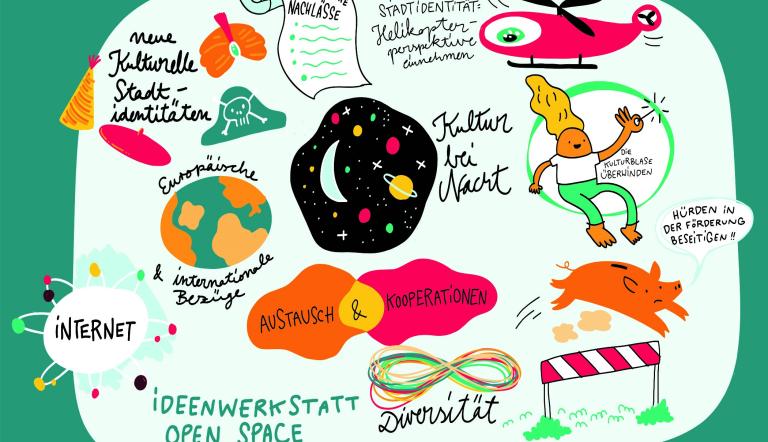 NACHLÄSSE
STADTIDENTITÄT:
Helikopter-
perspektive
einnehmen
neue
Kulturelle
Stadt-
identitäten
Kultur
bei
Nacht
DIE
KULTURBLASE
ÜBERWINDEN
Europäische
& internationale
Bezüge
HÜRDEN IN
DER FÖRDERUNG
BESEITIGEN!!
INTERNET
AUSTAUSCH & KOOPERATIONEN
Diversität
IDEENWERKSTATT
OPEN SPACE